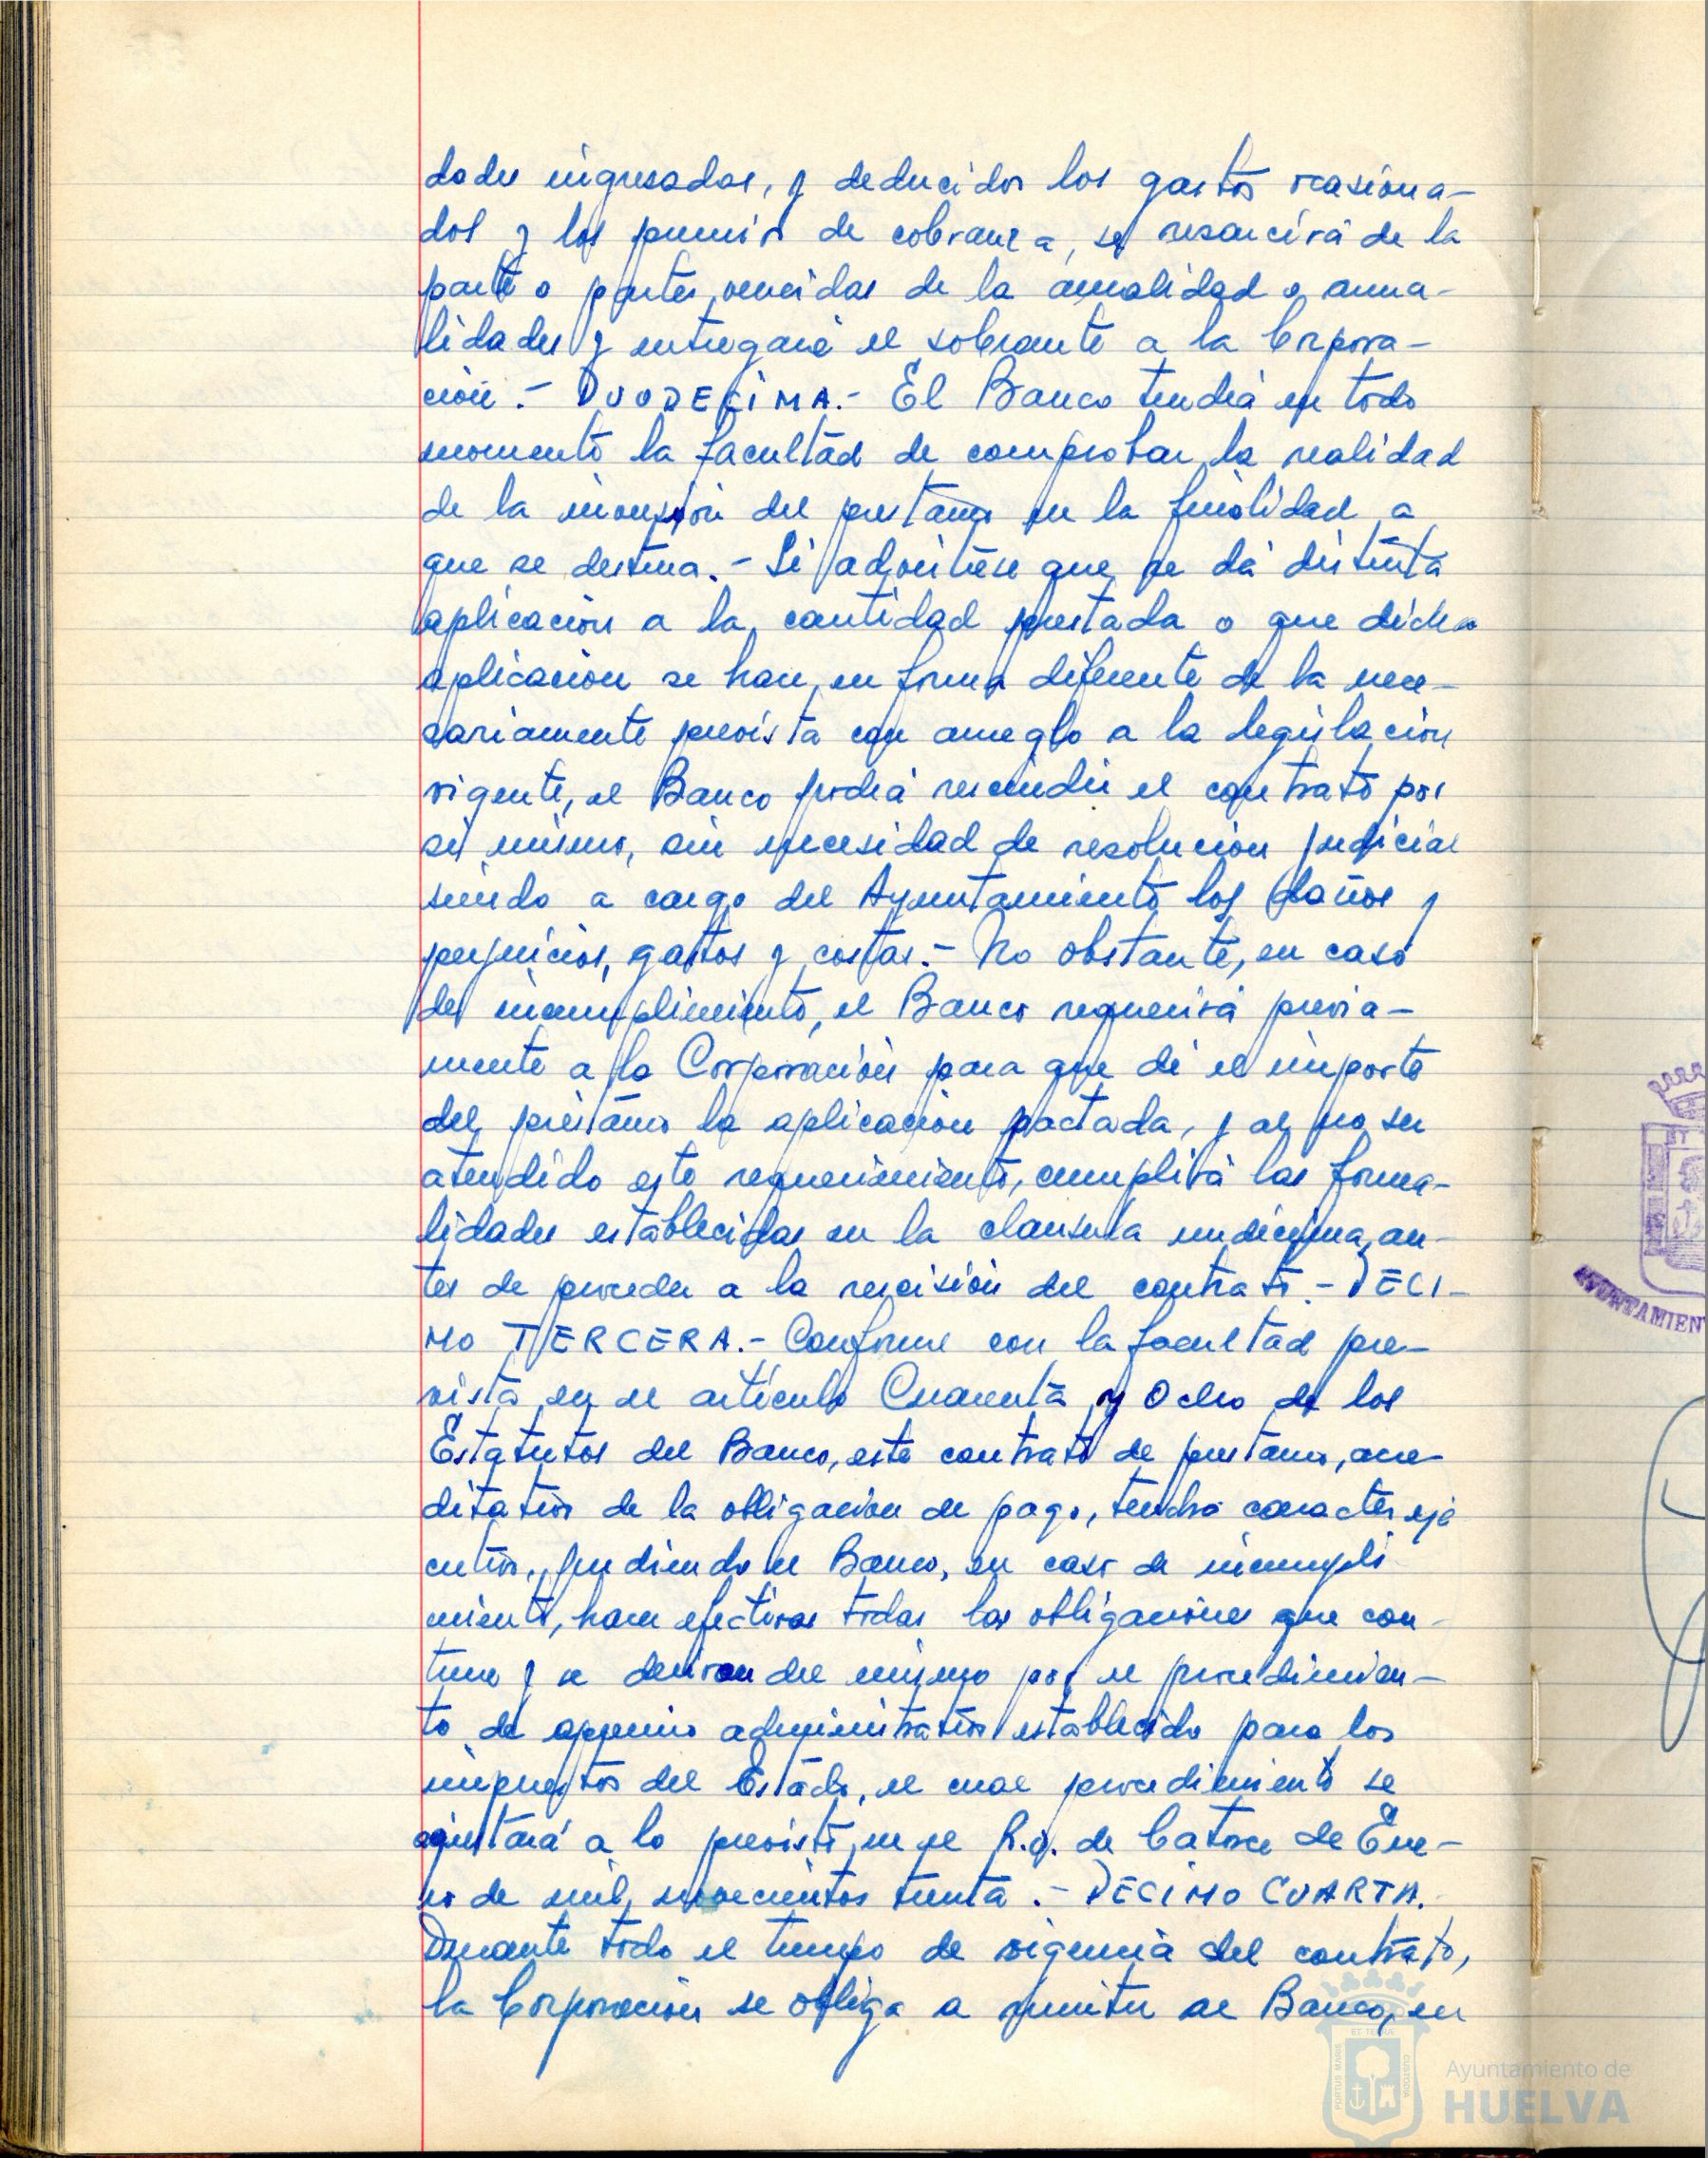 dades ingresadas, y deducidos los gastos ocasiona-
dos y los premios de cobranza, se resarcirá de la
parte o partes vencidas de la anualidad o anua-
lidades y entregará el sobrante a la Corpora-
ción.- DUODECIMA.- El Banco tendrá en todo
momento la facultad de comprobar la realidad
de la inversión del prestamo en la finalidad a
que se destina.- Si advirtiese que se dá distinta
aplicación a la cantidad prestada o que dicha
aplicación se hace, en forma diferente de la nece-
sariamente prevista con arreglo a la legislación
vigente, el Banco podrá rescindir el contrato por
si mismo, sin necesidad de resolución judicial
siendo a cargo del Ayuntamiento los daños y
perjuicios, gastos y costas.- No obstante, en caso
de incumplimiento, el Banco requerirá previa-
mente a la Corporación para que dé el importe
del préstamo la aplicación pactada, y al no ser
atendido este requerimiento, cumplirá las forma-
lidades establecidas en la clausula undécima, an-
tes de proceder a la rescisión del contrato.- DECI-
MO TERCERA.- Conforme con la facultad pre-
vista en el artículo Cuarenta y Ocho de los
Estatutos del Banco, este contrato de prestamo, acre-
ditativo de la obligación de pago, tendrá caracter eje
cutivo, pudiendo el Banco, en caso de incumpli
miento, hacer efectivas todas las obligaciones que con-
tiene y se derivan del mismo por el procedimien-
to de apremio administrativo establecido para los
impuestos del Estado, el cual procedimiento se
ajustará a lo previsto en el R.O. de Catorce de Ene-
ro de mil novecientos treinta.- DECIMO CUARTA.
Durante todo el tiempo de vigencia del contrato,
la Corporación se obliga a remitir al Banco, en
AYUNTAMIEN
PORTUS MARIS
ET TERRA
CUSTODIA
Ayuntamiento de
HUELVA